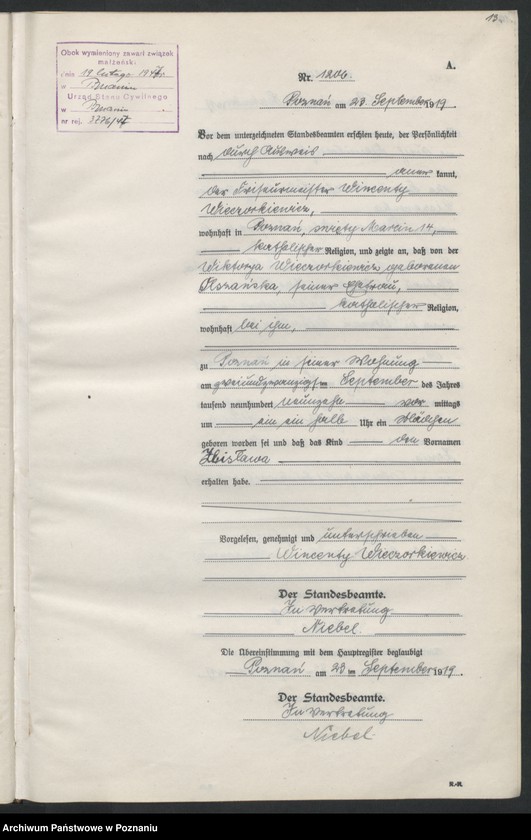 13
Obok wymieniony zawarł związek
małżeński
dnia 19 lutego 1947 r.
w
Urząd Stanu Cywilnego
w
nr rej. 2276/47
A.
Nr. 1206.
Poznań am 23. September 1919.
Vor dem unterzeichneten Standesbeamten erschien heute, der Persönlichkeit
nach durch Ausweis
anerkannt,
der Friseurmeister Wincenty
Wieczorkiewicz,
wohnhaft in Poznań, święty Marcin 14,
katholischer Religion, und zeigte an, daß von der
Wiktorya Wieczorkiewicz geborenen
seiner Ehefrau,
katholischer Religion,
wohnhaft bei ihm,
zu Poznań in seiner Wohnung
am zweiundzwanzigsten September des Jahres
tausend neunhundert neunzehn vormittags
um ein ein halb Uhr ein Mädchen
geboren worden sei und daß das Kind den Vornamen
Zbisława
erhalten habe.
Vorgelesen, genehmigt und unterschrieben
Wincenty Wieczorkiewicz
Der Standesbeamte.
In Vertretung
Niebel.
Die Übereinstimmung mit dem Hauptregister beglaubigt
Poznań am 23 September 1919.
Der Standesbeamte.
In Vertretung
Niebel
R.-R.
Archiwum Państwowe w Poznaniu